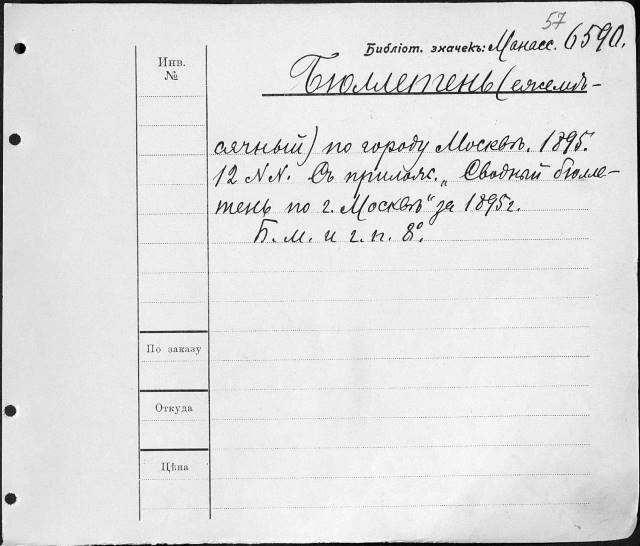 57
Библіот. значекъ: Манасс. 6590.
Инв.
№
Бюллетень (ежемѣ-
сячный) по городу Москвѣ. 1895.
12 NN. Съ прилож. „Сводный бюлле-
тень по г. Москвѣ" за 1895 г.
Б. м. и г. п. 8º.
По заказу
Откуда
Цѣна